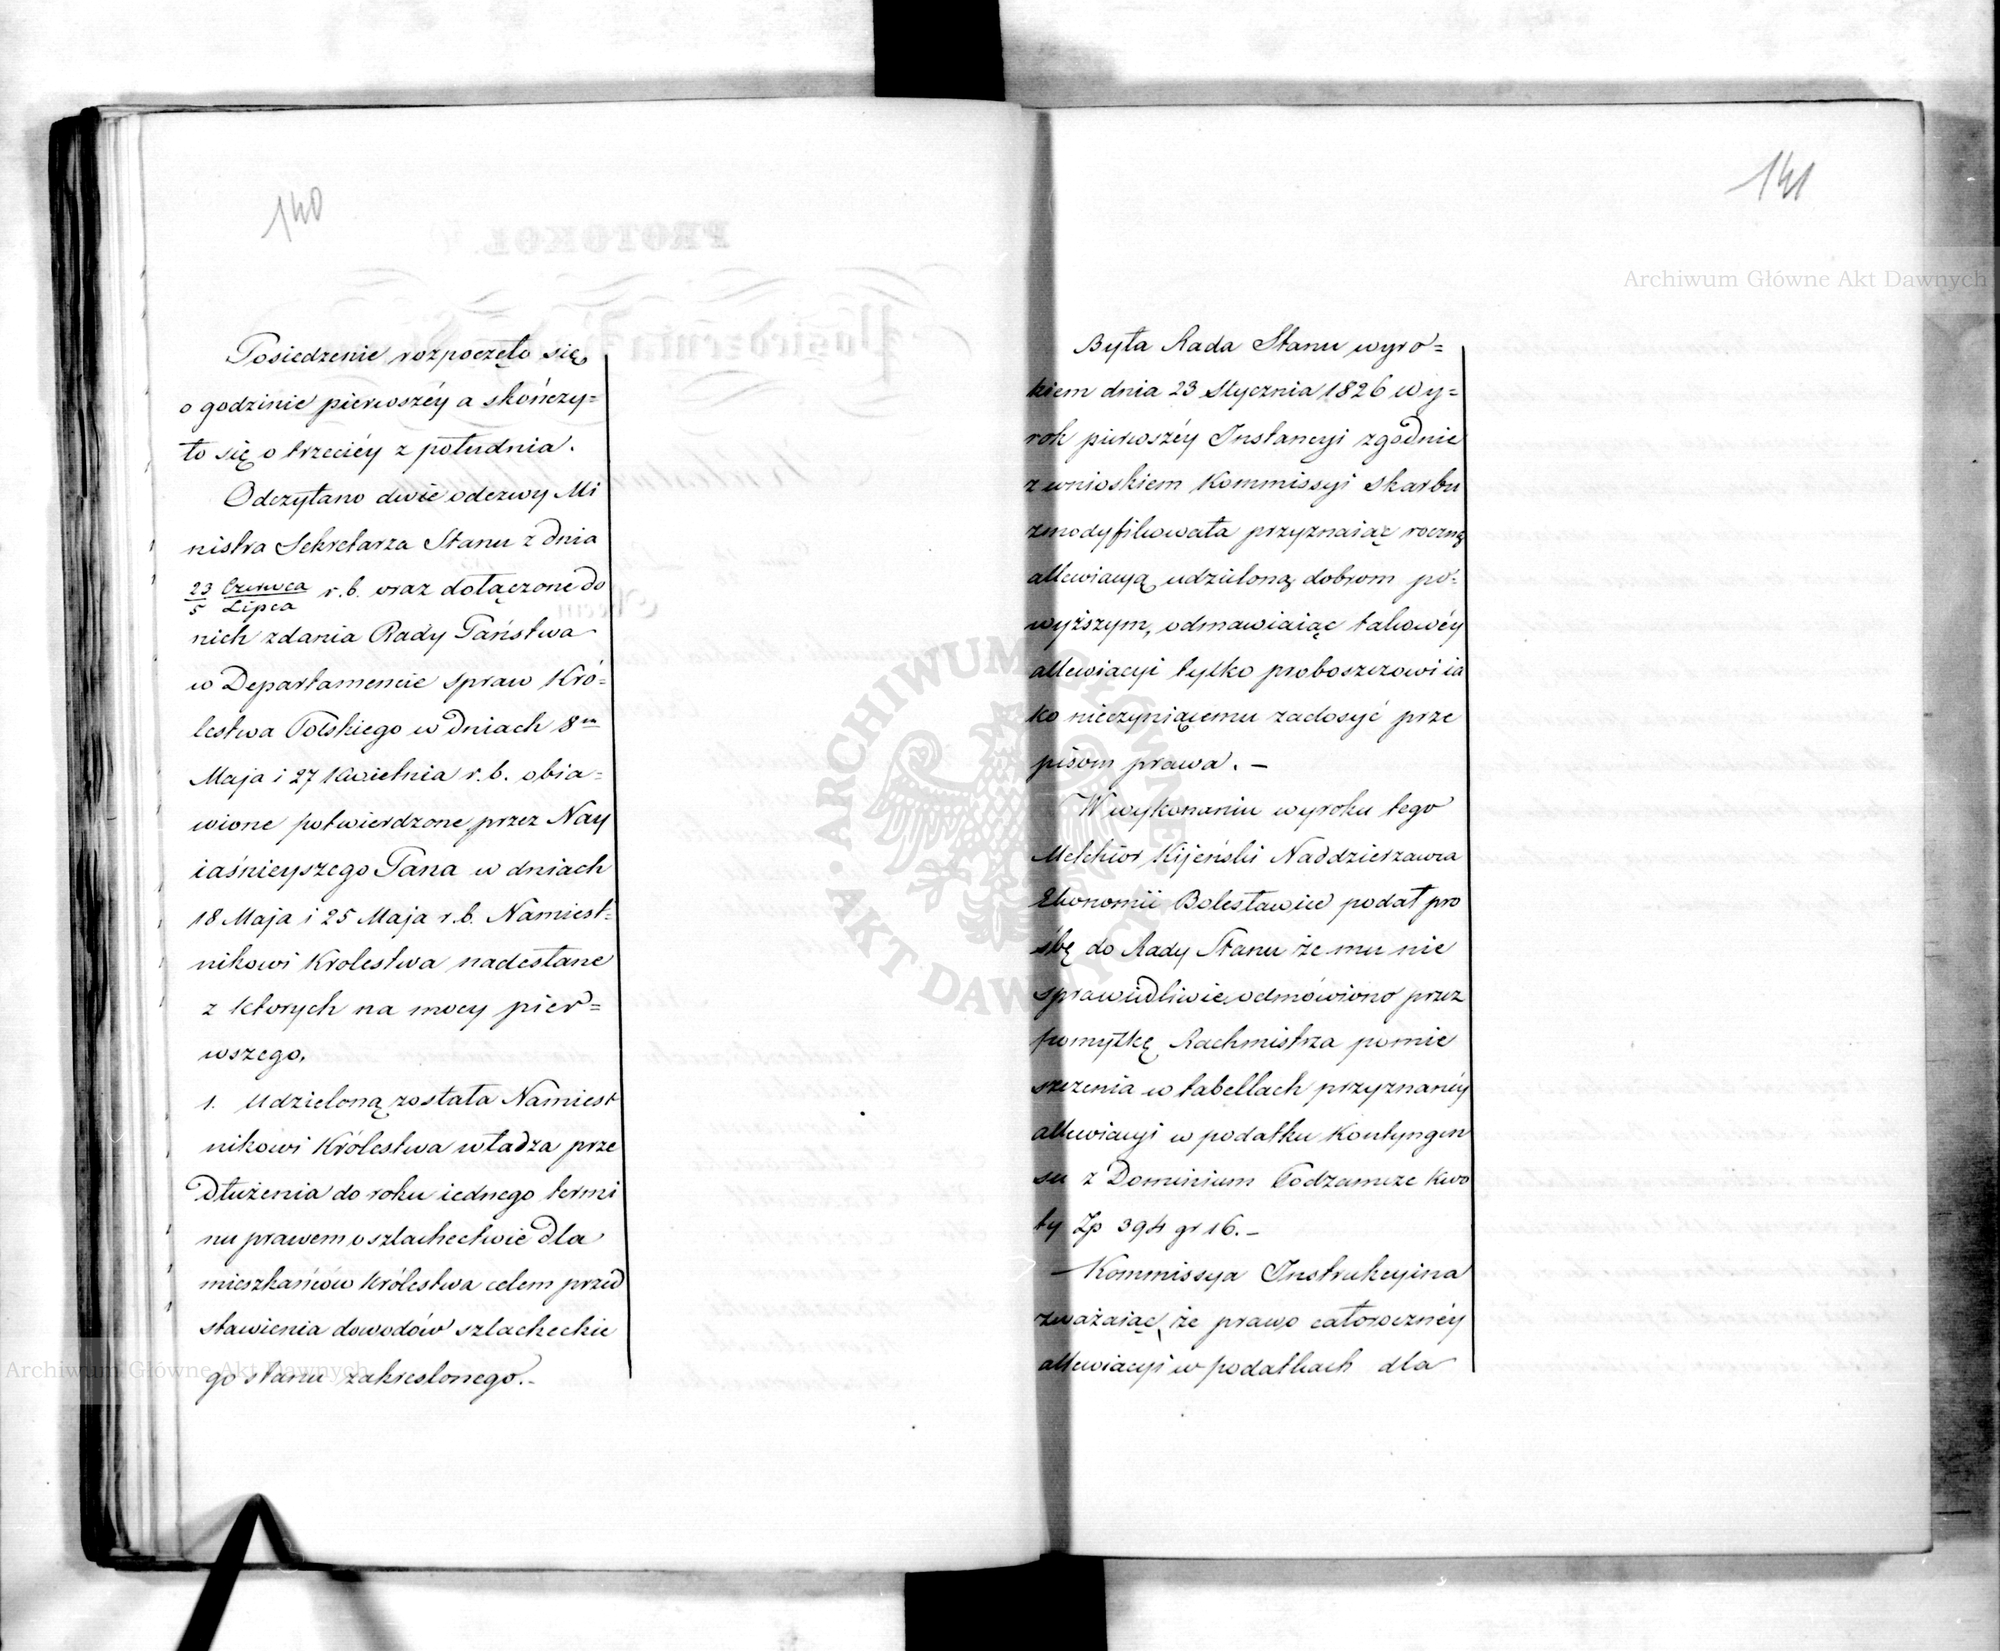 140
Posiedzenie rozpoczęło się
o godzinie pierwszéy a skończy=
ło się o trzeciéy z południa.
Odczytano dwie odezwy Mi
nistra Sekretarza Stanu z dnia
23 Czerwca / 5 Lipca r. b. oraz dołączone do
nich zdania Rady Państwa
w Departamencie spraw Kró=
lestwa Polskiego w dniach 8m
Maja i 27 Kwietnia r. b. obia=
wione potwierdzone przez Nay
iaśnieyszego Pana w dniach
18 Maja i 25 Maja r. b. Namiest=
nikowi Krolestwa nadesłane
z ktorych na mocy pier=
wszego,
1. Udzieloną została Namiest
nikowi Królestwa władza prze
dłużenia do roku iednego termi
nu prawem o szlachectwie dla
mieszkańców Królestwa celem przed
stawienia dowodów szlacheckie
go stanu zakreslonego.-
141
Była Rada Stanu wyro=
kiem dnia 23 Stycznia 1826 wy=
rok pierwszéy Instancyi zgodnie
z wnioskiem Kommissyi Skarbu
zmodyfikowała przyznaiąc roczną
allewiacyą udzieloną dobrom po=
wyższym, odmawiaiąc takowéy
allewiacyi tylko proboszczowi ia
ko nieczyniącemu zadosyć prze
pisom prawa. –
W wykonaniu wyroku tego
Melchior Kijeński Naddzierzawca
Ekonomii Bolesławiec podał pro
śbę do Rady Stanu że mu nie
sprawiedliwie odmówiono przez
pomyłkę Rachmistrza pomie
szczenia w tabellach przyznanéy
allewiacyi w podatku Kontyngen
su z Dominium Podzamcze kwo
ty Zp 394 gr 16. –
– Kommissya Instrukcyina
zważaiąc, że prawo całoroczney
allewiacyi w podatkach dla
Archiwum Główne Akt Dawnych
Archiwum Główne Akt Dawnych
ARCHIWUM GŁÓWNE · AKT DAWNYCH ·